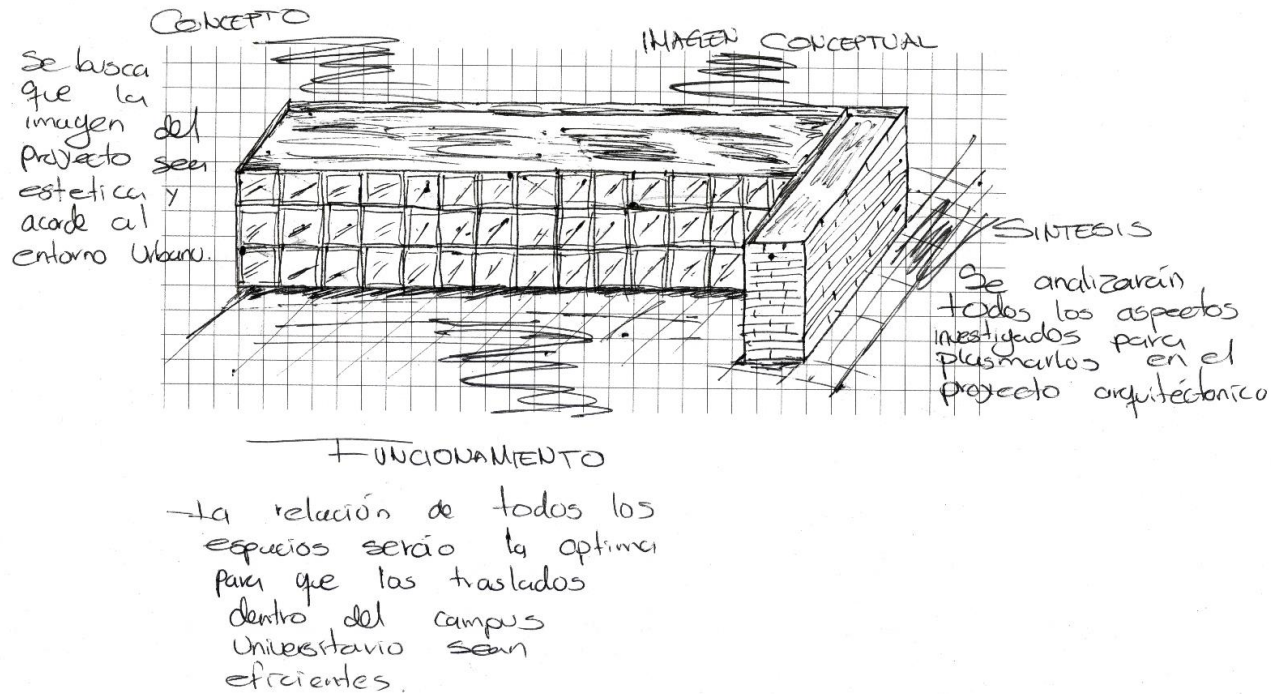 CONCEPTO
Se busca
que la
imagen del
proyecto sea
estetica y
acorde al
entorno Urbano.
IMAGEN CONCEPTUAL
SINTESIS
Se analizarán
todos los aspectos
investigados para
plasmarlos en el
proyecto arquitéctonico
FUNCIONAMIENTO
La relación de todos los
espacios serão la optima
para que los traslados
dentro del campus
Universitario sean
eficientes.